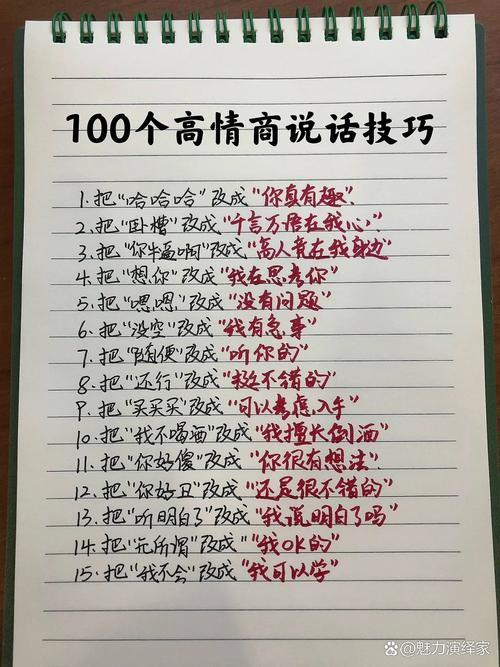 100个高情商说话技巧
1.把"哈哈哈"改成"你真有趣".
2.把"卧槽"改成"千言万语在我心".
3.把"你牛逼啊"改成"高人竟在我身边"
4.把"想你"改成"我在思考你"
5.把"嗯嗯"改成"没有问题"
6.把"没空"改成"我有急事"
7.把"随便"改成"听你的"
8.把"还行"改成"挺不错的"
9.把"买买买"改成"可以考虑入手"
10.把"我不喝酒"改成"我擅长倒酒"
11.把"你好傻"改成"你很有想法".
12.把"你好丑"改成"还是很不错的"
13.把"听明白了"改成"我说明白了吗"
14.把"无所谓"改成"我OK的"
15.把"我不会"改成"我可以学"
魅力演绎家